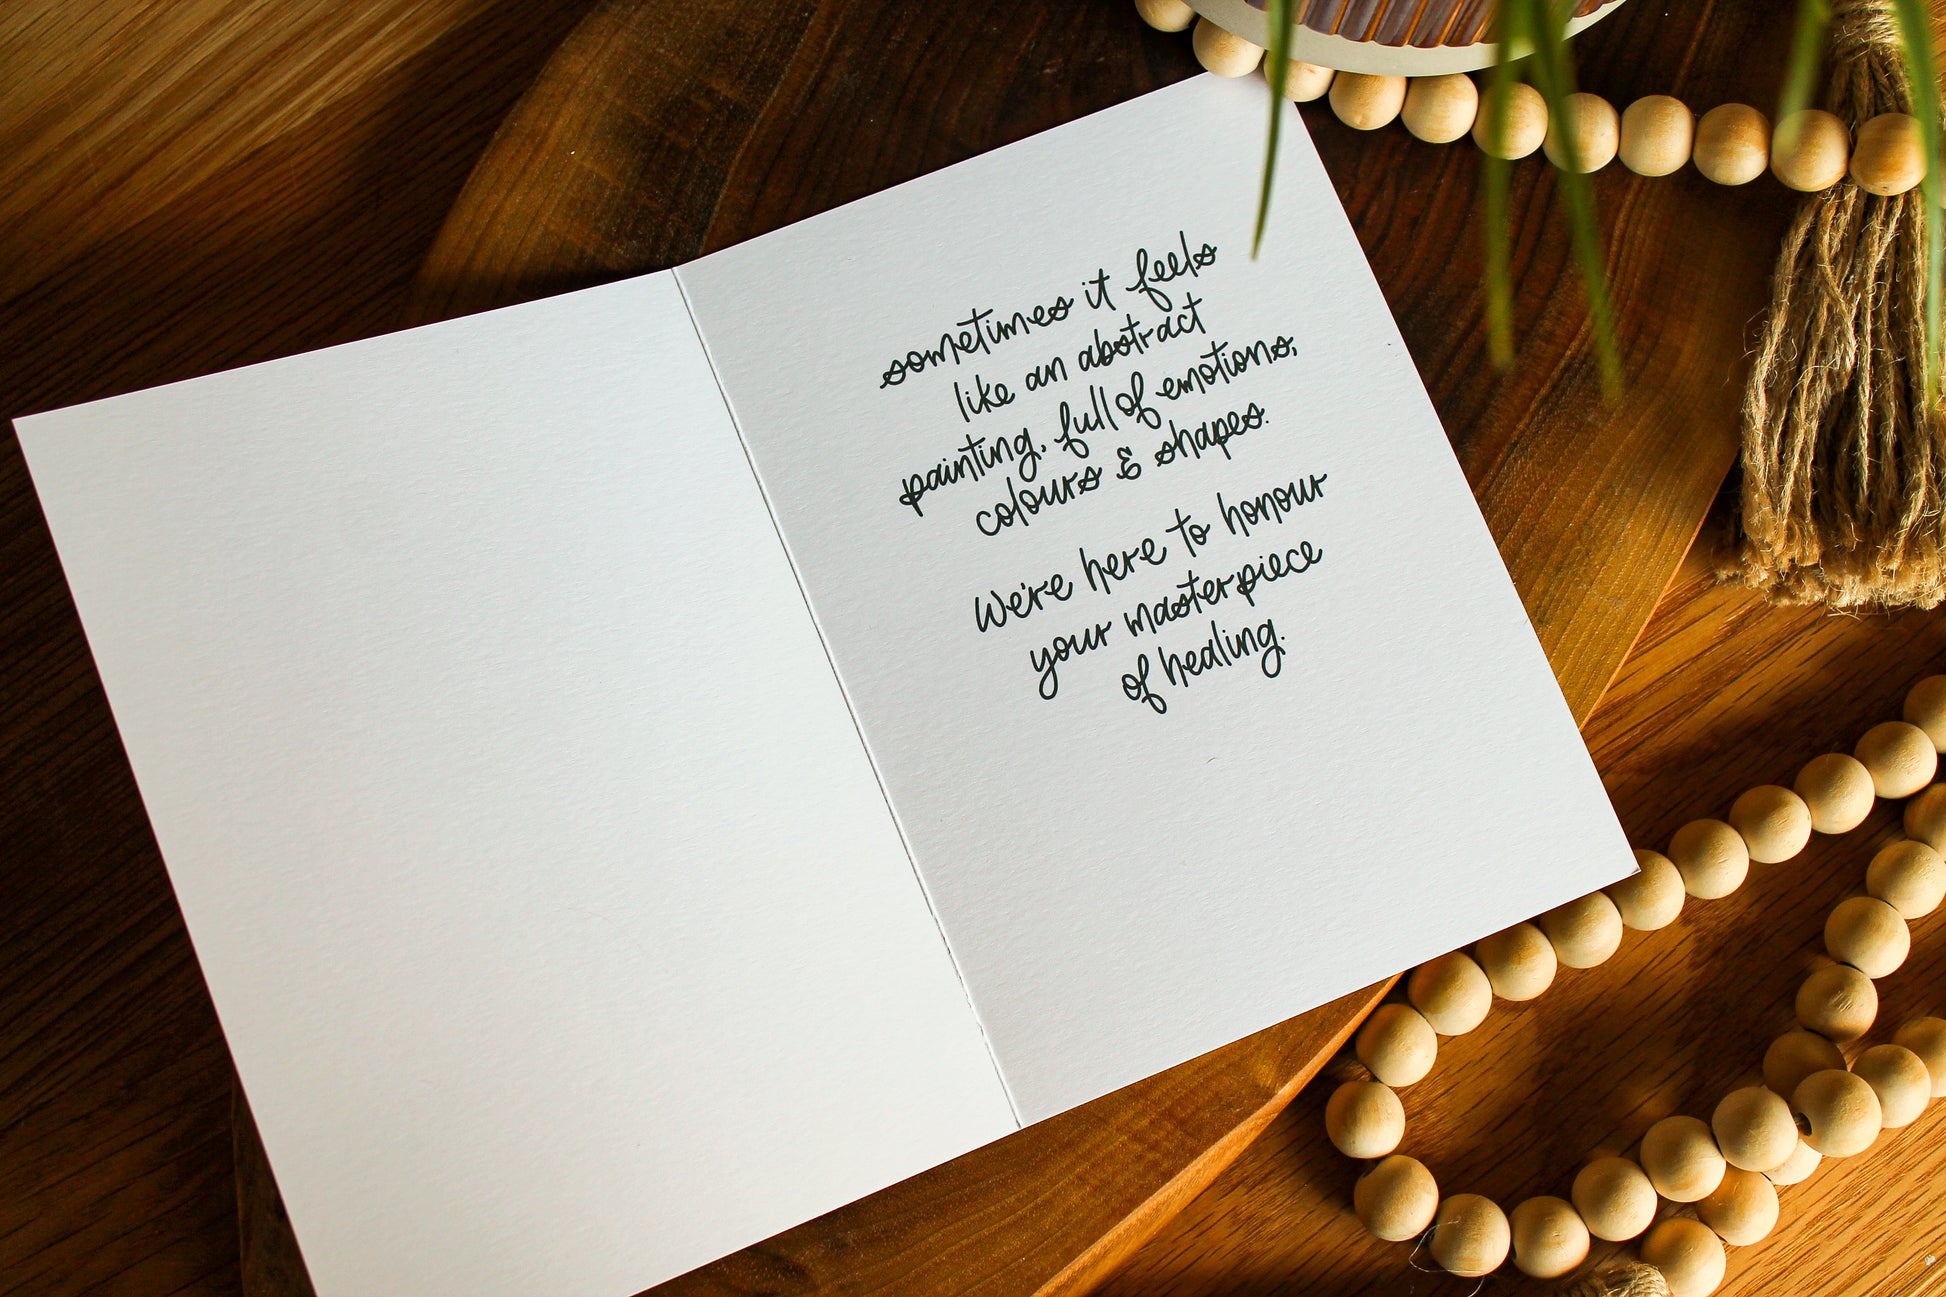 sometimes it feels
like an abstract
painting, full of emotions,
colours & shapes.
We're here to honour
your masterpiece
of healing.